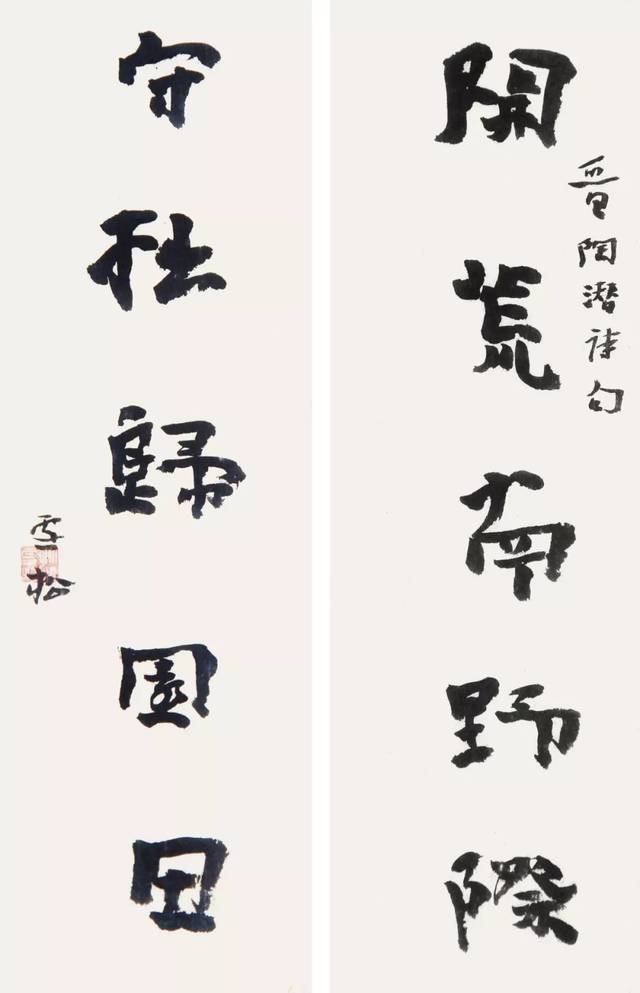 開荒南野際
晉陶潜詩句
守拙歸園田
雪松